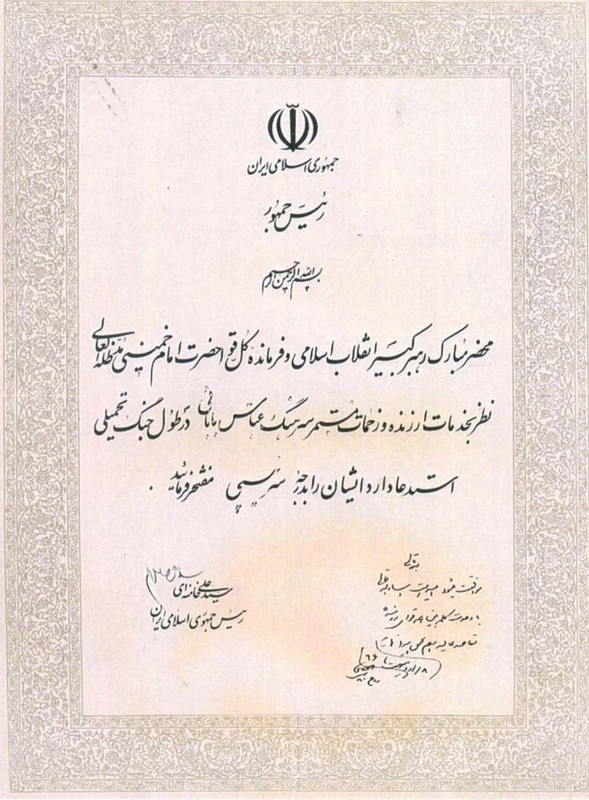 جمهوری اسلامی ایران
رئیس جمهور
بسم الله الرحمن الرحیم
محضر مبارک رهبر کبیر انقلاب اسلامی و فرمانده کل قوا حضرت امام خمینی مدظله العالی
نظر بخدمات ارزنده و زحمات مستمر سرهنگ عباس بابائی در طول جنگ تحمیلی
استدعا دارد ایشان را بدرجه سرتیپی مفتخر فرمائید .
سید علی خامنه‌ای
رئیس جمهوری اسلامی ایران
بتعالی
موافقت میشود